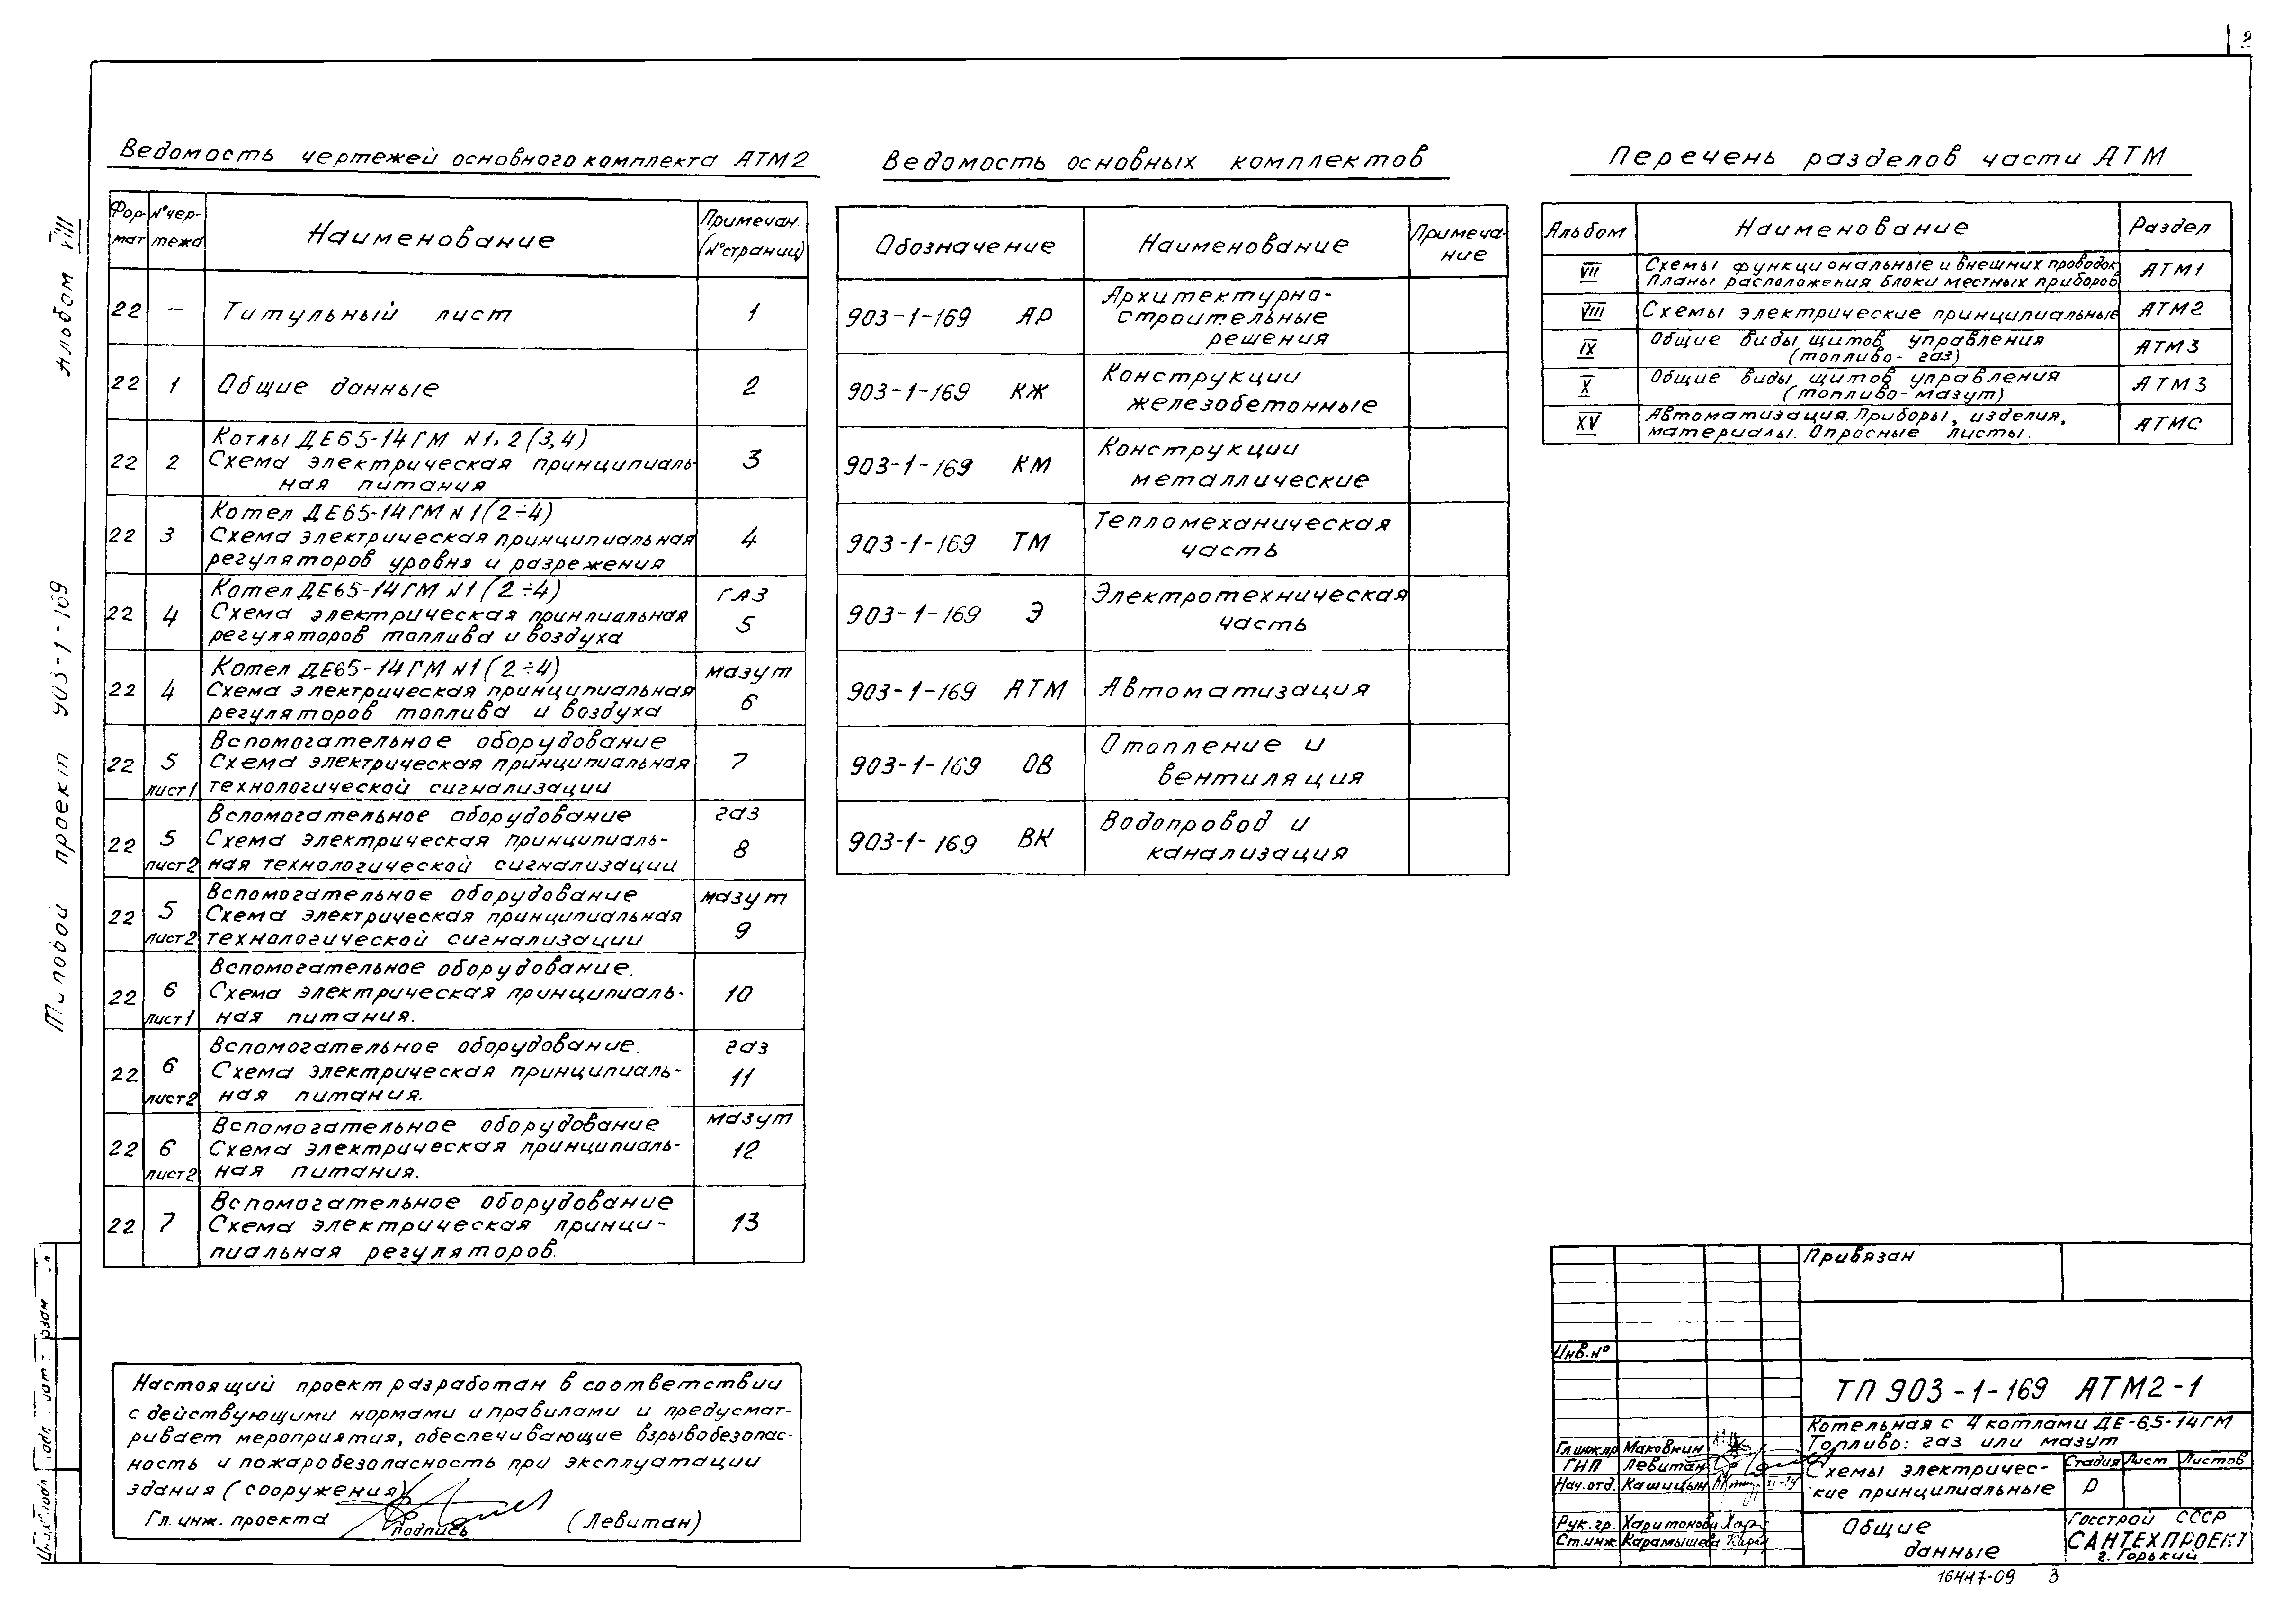 2
Альбом VIII
Типовой проект 903-1-169
Ведомость чертежей основного комплекта АТМ2
Фор- № чер- Наименование Примечан.
мат тежа (№ страниц)
22 — Титульный лист 1
22 1 Общие данные 2
Котлы ДЕ65-14ГМ №1, 2 (3,4)
22 2 Схема электрическая принципиаль- 3
ная питания
Котел ДЕ65-14ГМ №1 (2÷4)
22 3 Схема электрическая принципиальная 4
регуляторов уровня и разрежения
Котел ДЕ65-14ГМ №1 (2÷4) газ
22 4 Схема электрическая принпиальная 5
регуляторов топлива и воздуха
Котел ДЕ65-14ГМ №1 (2÷4) мазут
22 4 Схема электрическая принципиальная 6
регуляторов топлива и воздуха
Вспомогательное оборудование
22 5 Схема электрическая принципиальная 7
лист1 технологической сигнализации
Вспомогательное оборудование газ
22 5 Схема электрическая принципиаль- 8
лист2 ная технологической сигнализации
Вспомогательное оборудование мазут
22 5 Схема электрическая принципиальная 9
лист2 технологической сигнализации
Вспомогательное оборудование.
22 6 Схема электрическая принципиаль- 10
лист1 ная питания.
Вспомогательное оборудование. газ
22 6 Схема электрическая принципиаль- 11
лист2 ная питания.
Вспомогательное оборудование мазут
22 6 Схема электрическая принципиаль- 12
лист2 ная питания.
Вспомогательное оборудование
22 7 Схема электрическая принци- 13
пиальная регуляторов.
Настоящий проект разработан в соответствии
с действующими нормами и правилами и предусмат-
ривает мероприятия, обеспечивающие взрывобезопас-
ность и пожаробезопасность при эксплуатации
здания (сооружения)
Гл. инж. проекта подпись (Левитан)
Ведомость основных комплектов
Обозначение Наименование Примеча-
ние
Архитектурно-
903-1-169 АР строительные
решения
903-1-169 КЖ Конструкции
железобетонные
903-1-169 КМ Конструкции
металлические
903-1-169 ТМ Тепломеханическая
часть
903-1-169 Э Электротехническая
часть
903-1-169 АТМ Автоматизация
903-1-169 ОВ Отопление и
вентиляция
903-1-169 ВК Водопровод и
канализация
Перечень разделов части АТМ
Альбом Наименование Раздел
VII Схемы функциональные и внешних проводок АТМ1
Планы расположения блоки местных приборов
VIII Схемы электрические принципиальные АТМ2
IX Общие виды щитов управления АТМ3
(топливо-газ)
X Общие виды щитов управления АТМ3
(топливо-мазут)
XV Автоматизация. Приборы, изделия, АТМС
материалы. Опросные листы.
Привязан
Инв.№
ТП 903-1-169 АТМ2-1
Котельная с 4 котлами ДЕ-6,5-14ГМ
Топливо: газ или мазут
Гл.инж.пр Маковкин
ГИП Левитан
Нач.отд. Кашицын
Рук.гр. Харитонова
Ст.инж. Карамышева
Схемы электричес-
кие принципиальные
Стадия Лист Листов
Р
Общие
данные
Госстрой СССР
САНТЕХПРОЕКТ
г. Горький
16447-09 3